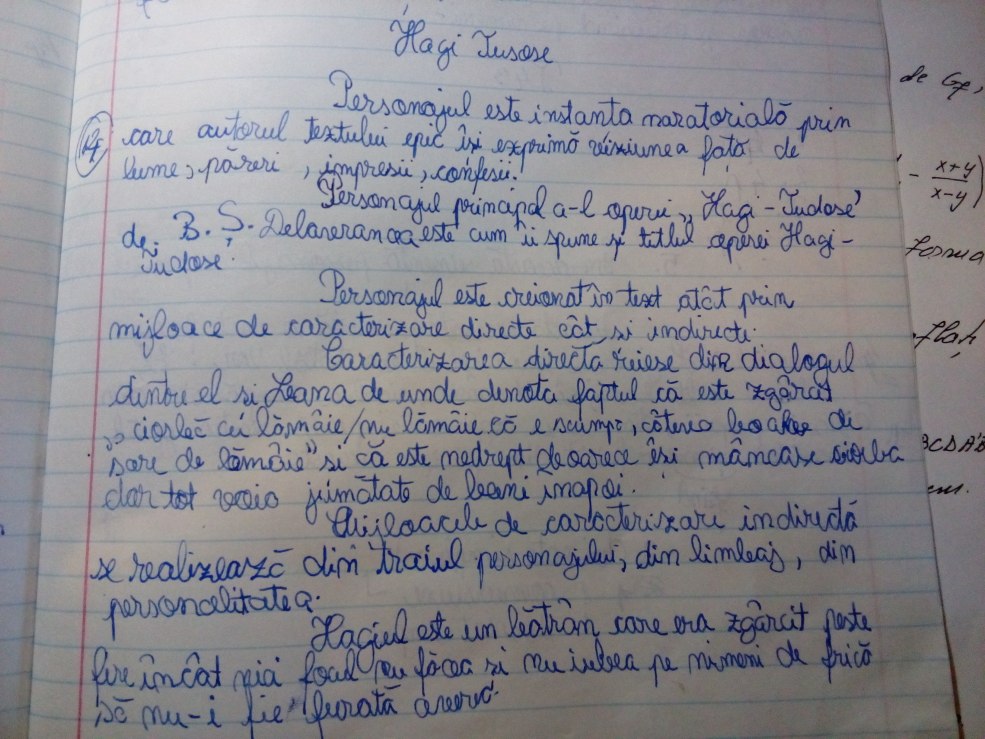 Hagi Tusose
de Gx,
Personajul este instanta naratorială prin
care autorul textului epic își exprimă viziunea față de
lume, păreri, impresii, confesii.
- x+y
x-y )
Personajul principal a-l operei „Hagi-Tudose"
de B. Ș. Delavrancea este cum îi spune și titlul operei Hagi-
Tudose.
Forma
Personajul este creionat în text atât prin
mijloace de caracterizare directe cât si indirecte.
Aflați
Caracterizarea directă reiese din dialogul
dintre el si Leana de unde denota faptul că este zgârcit
„ciorbă cu lămâie/nu lămâie că e scump, câteva boabe de
sare de lămâie" si că este nedrept deoarece își mâncase ciorba
BCDA'B
dar tot voia jumătate de bani înapoi.
cm.
Mijloacele de caracterizare indirectă
se realizează din traiul personajului, din limbaj, din
personalitatea.
Hagiul este un bătrân care era zgârcit peste
fire încât nici focul nu făcea si nu iubea pe nimeni de frică
să nu-i fie furată averea.